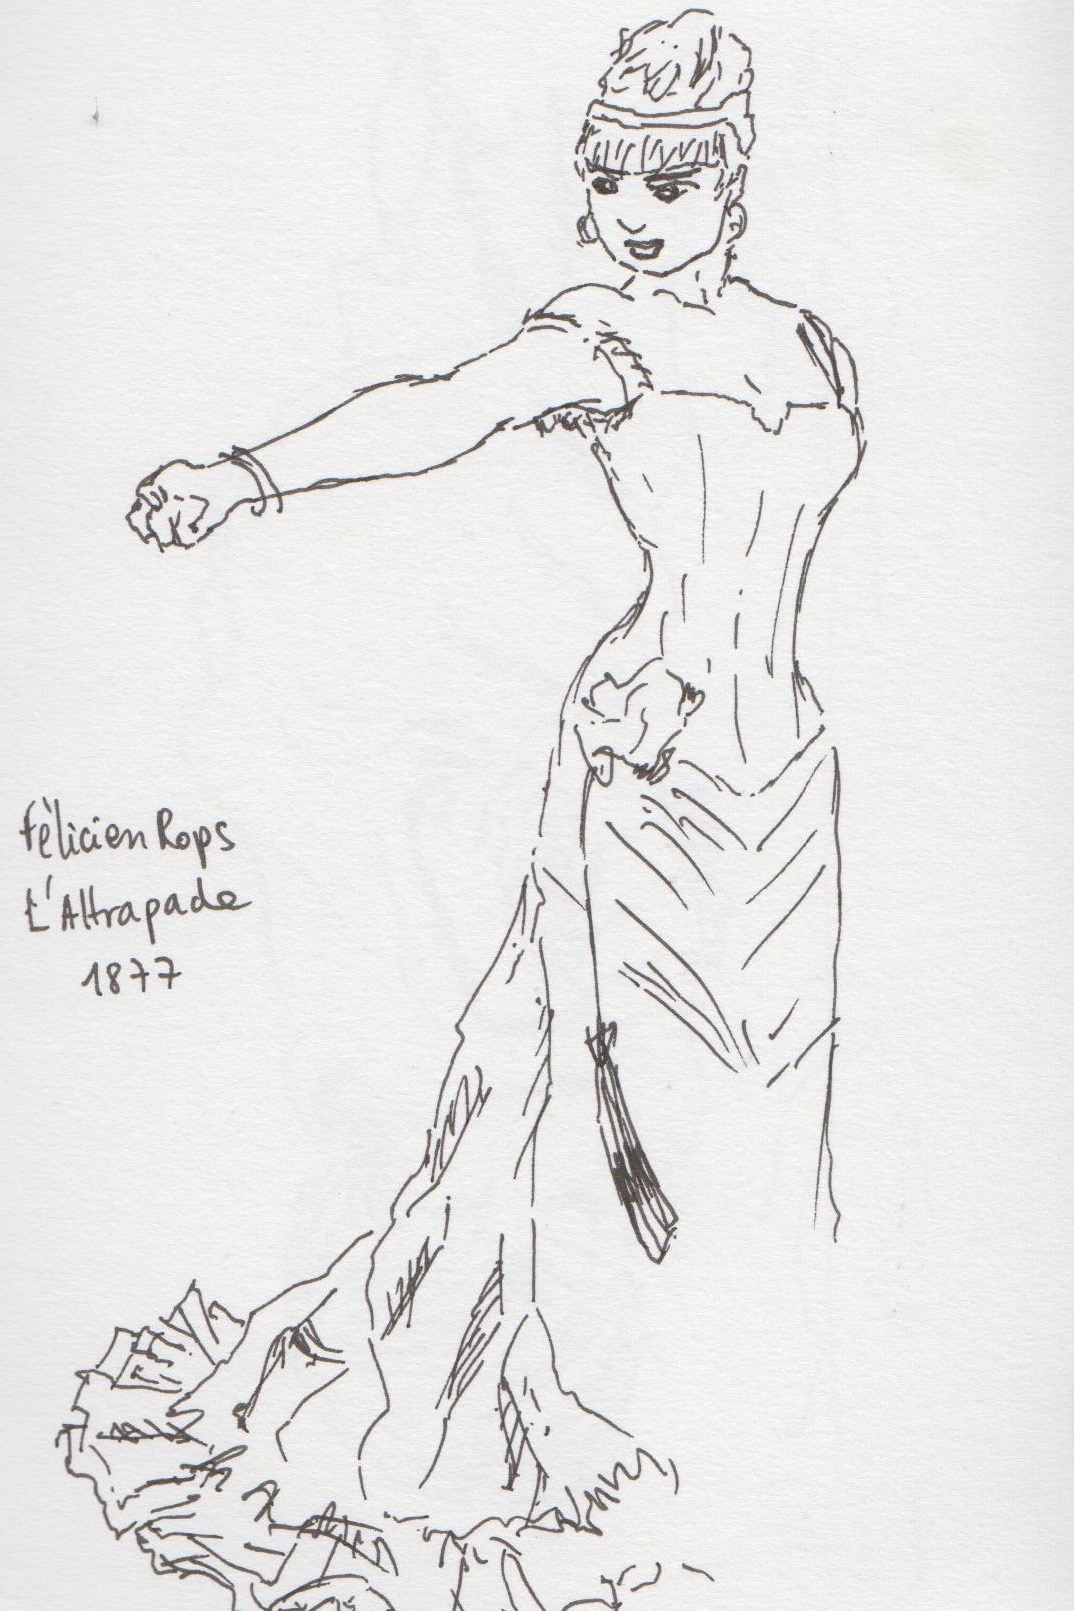 Félicien Rops
L'Attrapade
1877